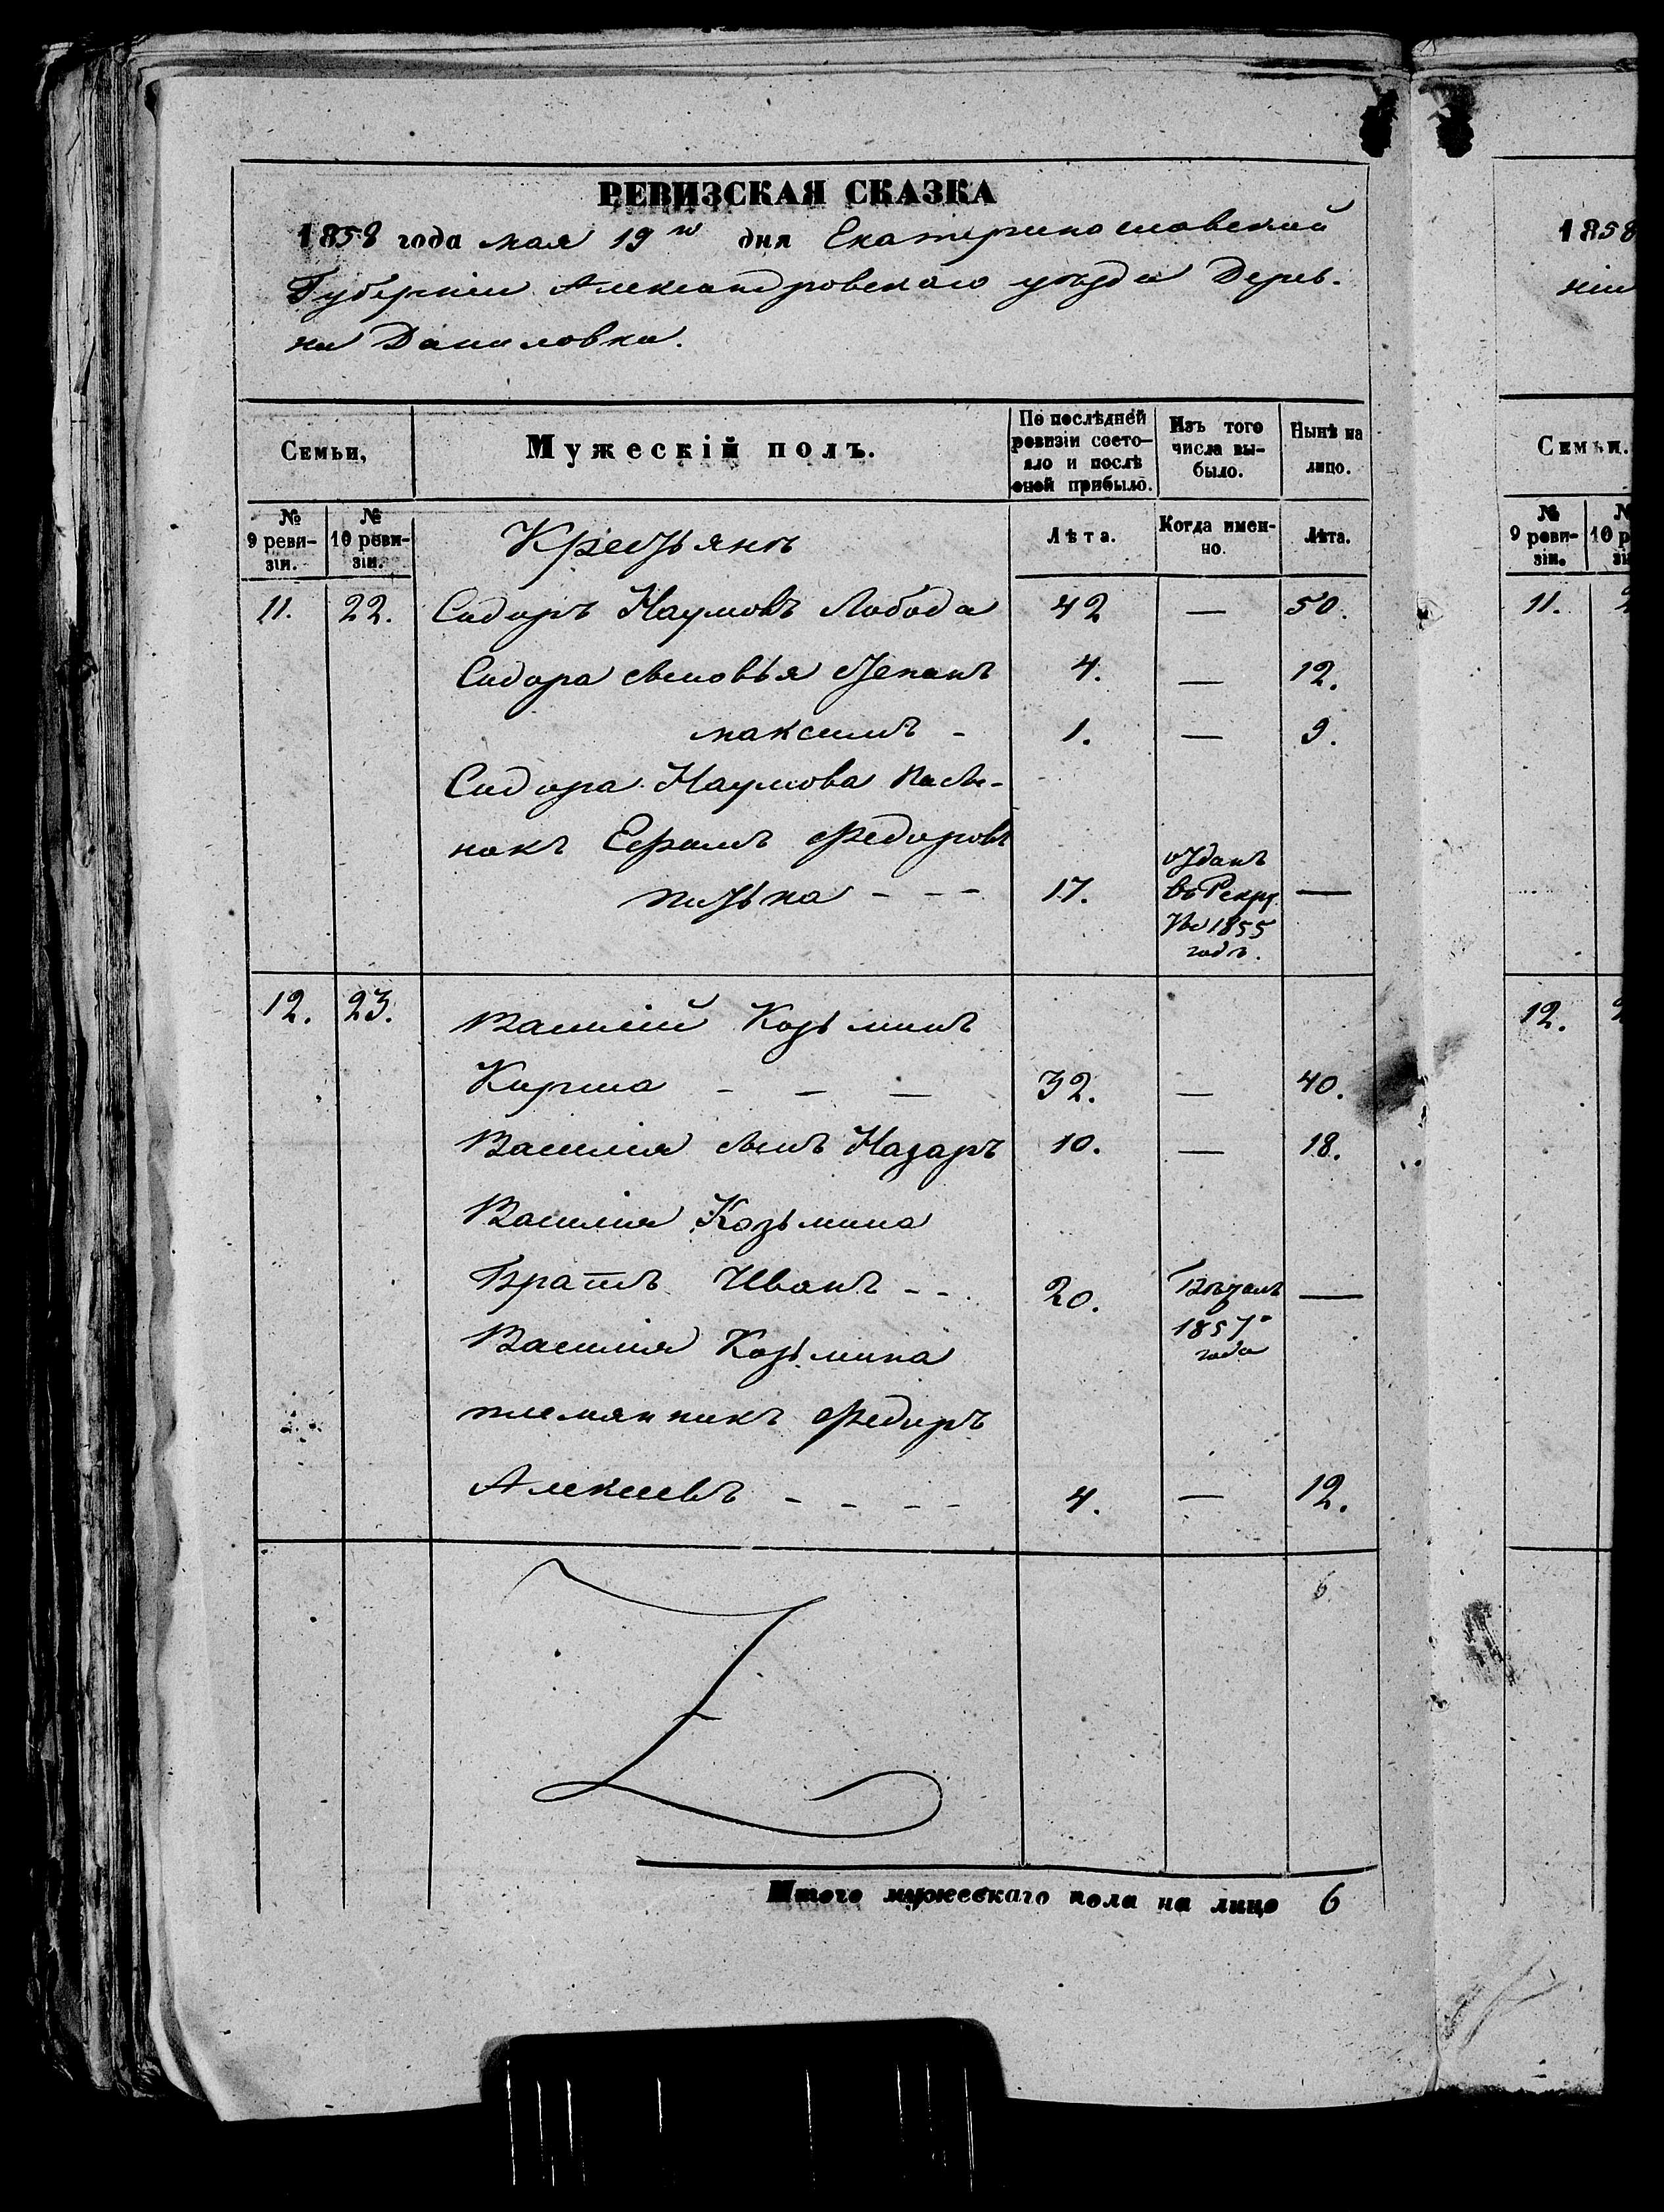 РЕВИЗСКАЯ СКАЗКА
1858 года мая 19го дня Екатеринославской
Губерніи Александровскаго уѣзда Дерев-
ни Даниловки.
Семьи,
Мужескій полъ.
По послѣдней ревизіи состо-яло и послѣ оной прибыло.
Изъ того числа вы-было.
Нынѣ на лицо.
№ 9 реви-зіи.
№ 10 реви-зіи.
Крестьянъ
Лѣта.
Когда имен-но.
Лѣта.
11. 22. Сидоръ Наумовъ Лобода 42 — 50.
Сидора сыновья Степанъ 4. — 12.
максимъ - 1. — 9.
Сидора Наумова пасын-
нокъ Ефимъ Федоровъ
17. отданъ въ Рекру ты 1855 годъ. —
12. 23. Василій Козьминъ
Кирша - - — 32. — 40.
Василія сынъ Назаръ 10. — 18.
Василія Козьмина
Братъ Иванъ - - 20. Бѣжалъ 1857го года —
Василія Козьмина
племянникъ Федоръ
Алексѣевъ - - - - 4. — 12.
6
Итого мужескаго пола на лицо 6
1858
ніи
Семьи.
№ 9 реви-зіи.
№ 10 р зі
11. 2
12. 2